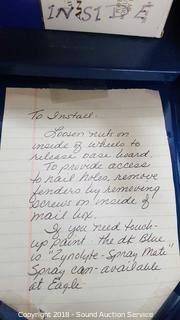 INSIDE
To Install -
Loosen nuts on
inside of wheels to
release base board.
To provide access
to nail holes, remove
fenders by removing
screws on inside of
mail box.
If you need touch-
up paint the dk Blue
is "Zynolyte-Spray Mate"
Spray can - available
at Eagle
Copyright 2018 - Sound Auction Service